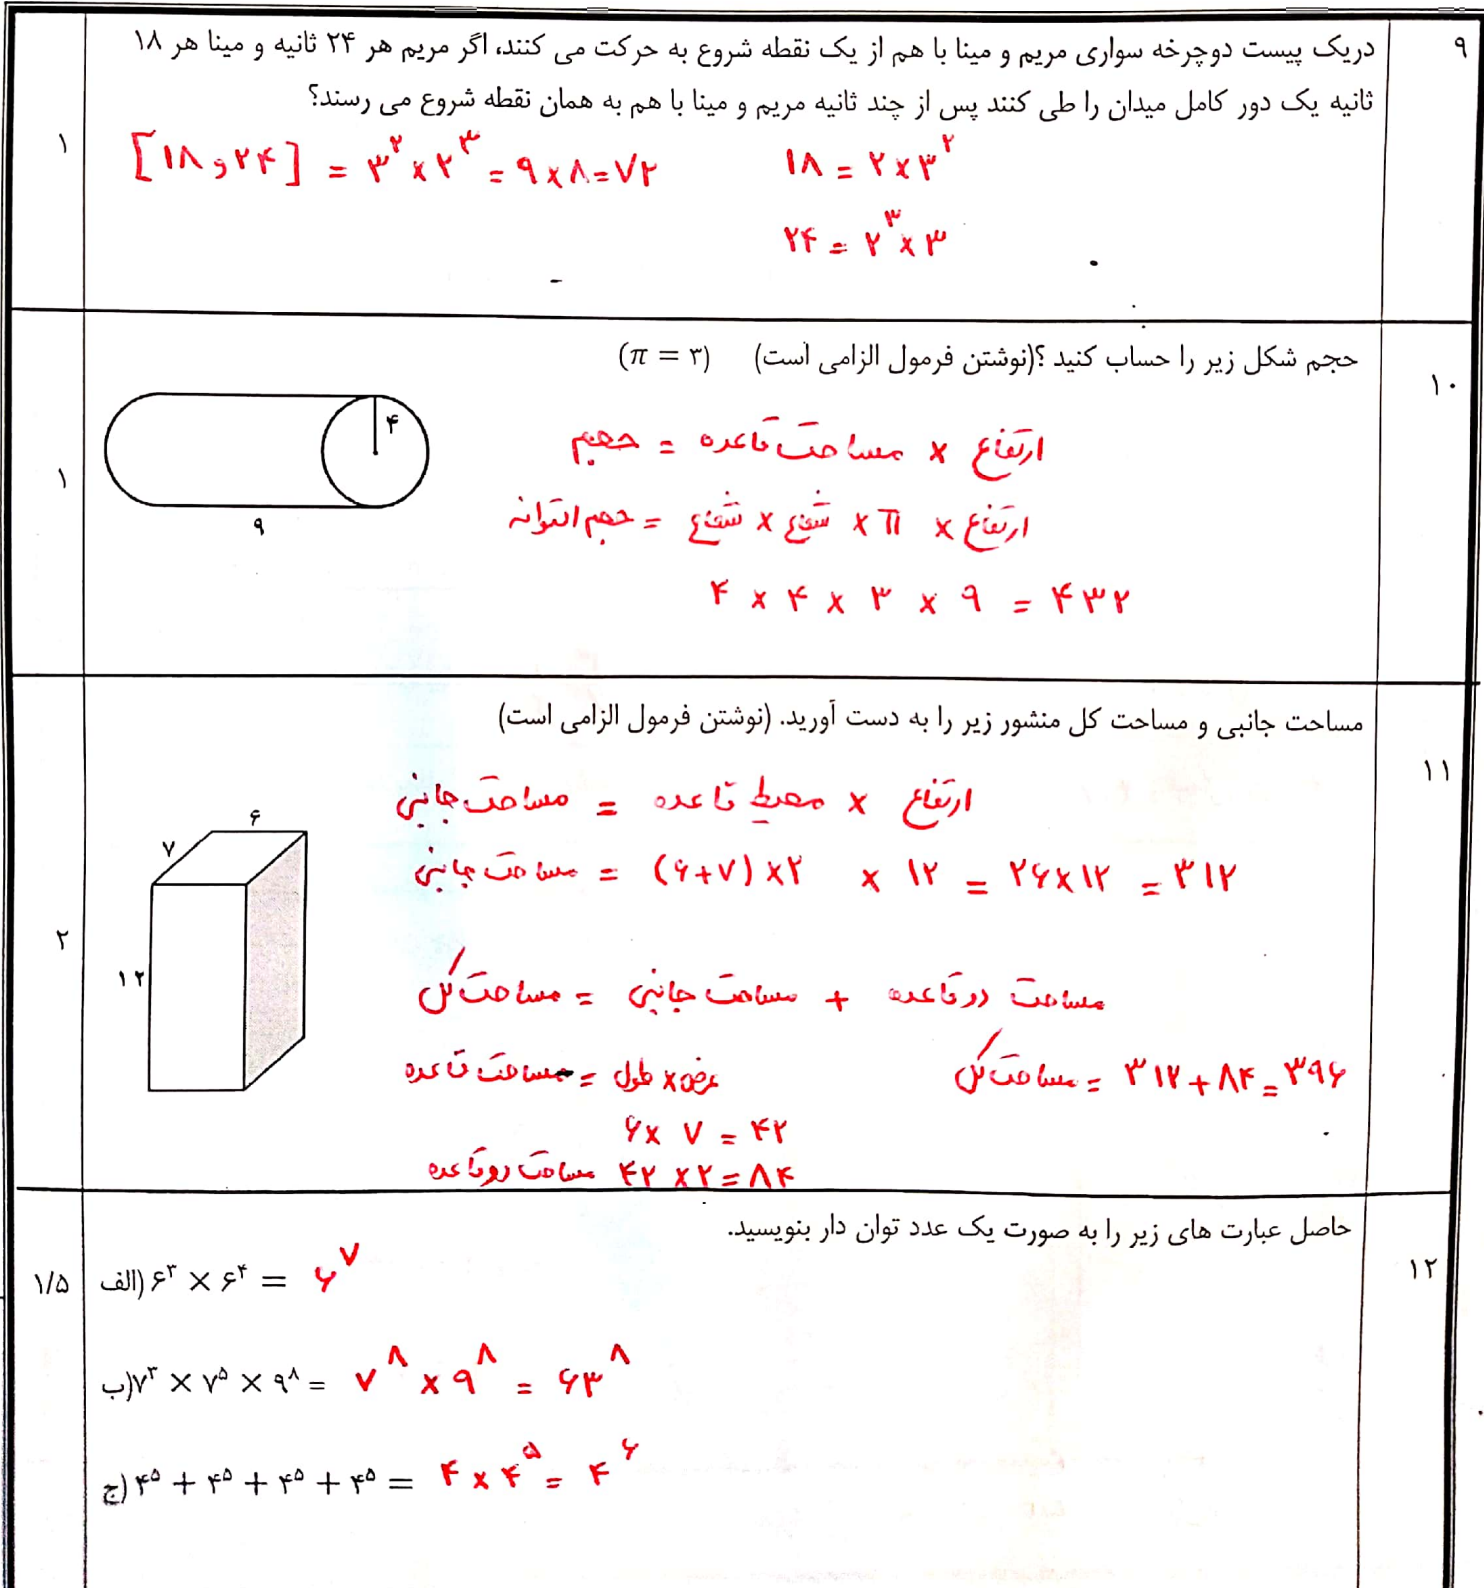 ۹
دریک پیست دوچرخه سواری مریم و مینا با هم از یک نقطه شروع به حرکت می کنند، اگر مریم هر ۲۴ ثانیه و مینا هر ۱۸
ثانیه یک دور کامل میدان را طی کنند پس از چند ثانیه مریم و مینا با هم به همان نقطه شروع می رسند؟
۱
[۱۸ و ۲۴] = ۳^۲ × ۲^۳ = ۹ × ۸ = ۷۲
۱۸ = ۲ × ۳^۲
۲۴ = ۲^۳ × ۳
۱۰
حجم شکل زیر را حساب کنید ؟(نوشتن فرمول الزامی است) (π = ۳)
۱
۴
۹
ارتفاع × مساحت قاعده = حجم
ارتفاع × π × شعاع × شعاع = حجم استوانه
۴ × ۴ × ۳ × ۹ = ۴۳۲
۱۱
مساحت جانبی و مساحت کل منشور زیر را به دست آورید. (نوشتن فرمول الزامی است)
۲
۶
۷
۱۲
ارتفاع × محیط قاعده = مساحت جانبی
مساحت جانبی = (۶+۷) × ۲ × ۱۲ = ۲۶ × ۱۲ = ۳۱۲
مساحت کل = مساحت جانبی + مساحت دو قاعده
مساحت قاعده = طول × عرض
مساحت کل = ۳۱۲ + ۸۴ = ۳۹۶
۶ × ۷ = ۴۲
مساحت دو قاعده ۴۲ × ۲ = ۸۴
۱۲
حاصل عبارت های زیر را به صورت یک عدد توان دار بنویسید.
۱/۵
الف) ۶^۳ × ۶^۴ = ۶^۷
ب) ۷^۳ × ۷^۵ × ۹^۸ = ۷^۸ × ۹^۸ = ۶۳^۸
ج) ۴^۵ + ۴^۵ + ۴^۵ + ۴^۵ = ۴ × ۴^۵ = ۴^۶